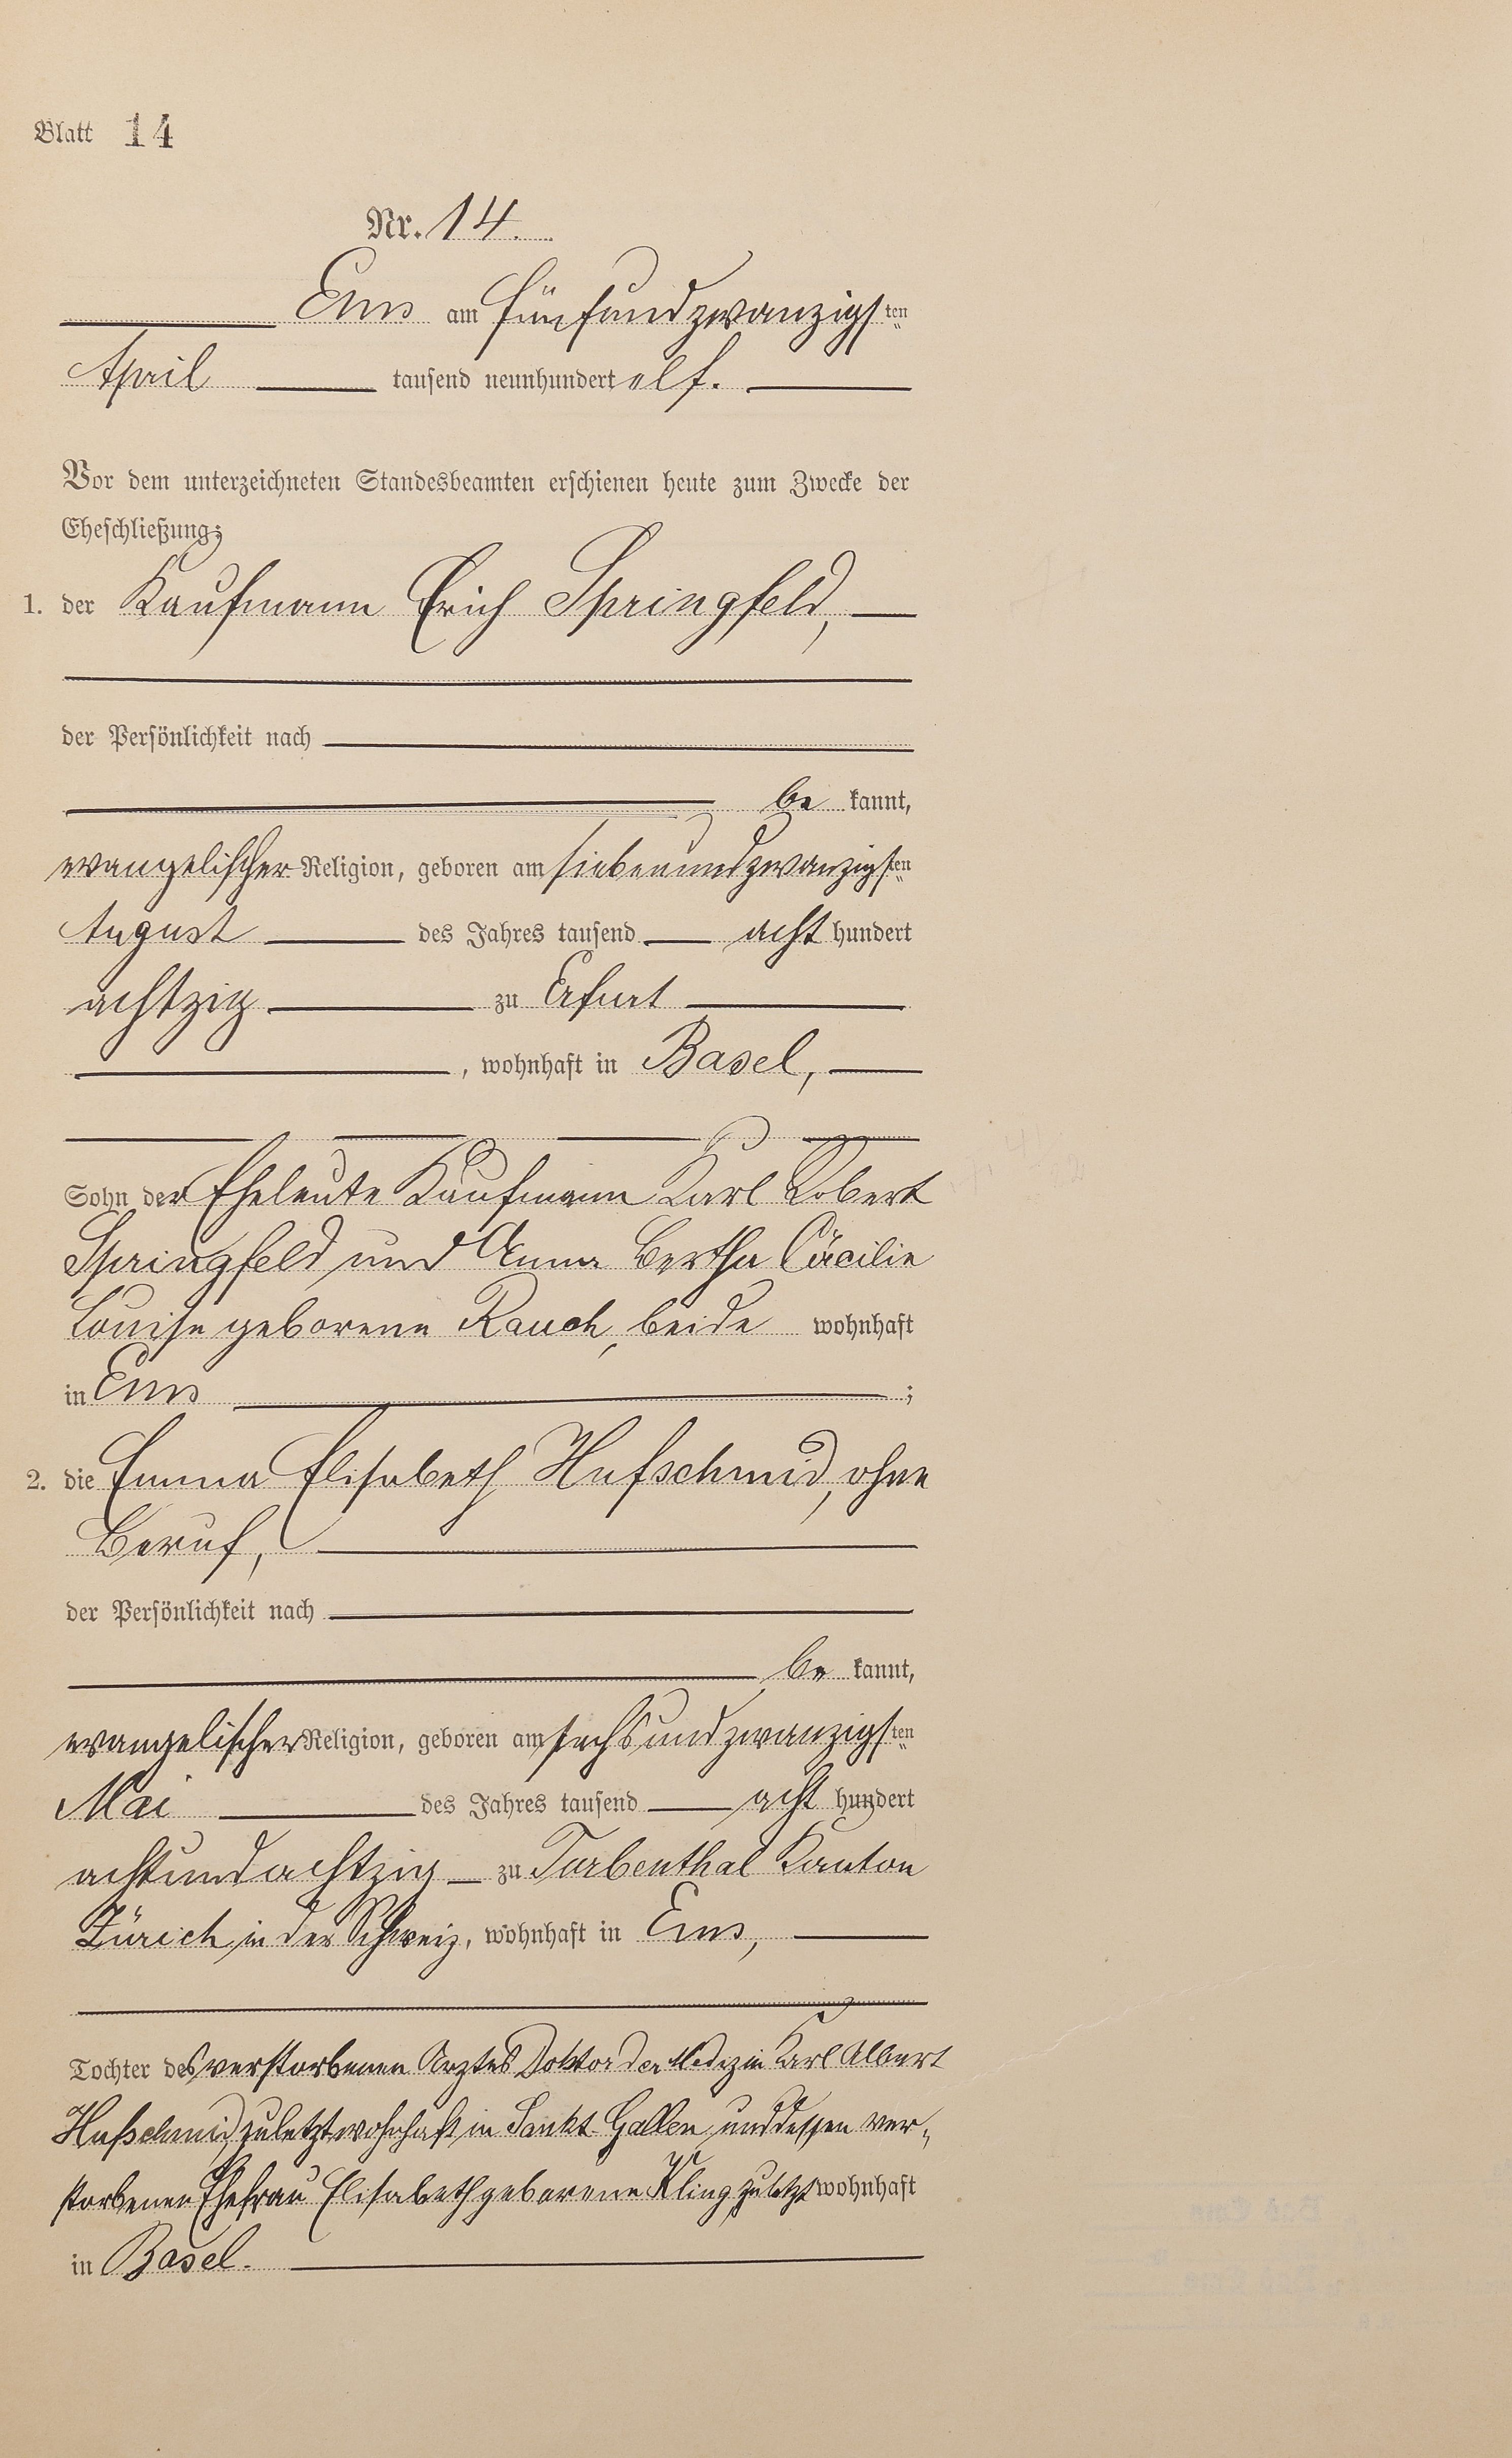 Blatt 14
Nr. 14.
Ems am fünfundzwanzigsten
April tausend neunhundert elf.
Vor dem unterzeichneten Standesbeamten erschienen heute zum Zwecke der
Eheschließung:
1. der Kaufmann Erich Springfeld,
der Persönlichkeit nach
be kannt,
evangelischer Religion, geboren am siebenundzwanzigsten
August des Jahres tausend acht hundert
achtzig zu Erfurt
, wohnhaft in Basel,
Sohn der Eheleute Kaufmann Karl Robert
Springfeld und Anna Bertha Cäcilie
Louise geborene Rauch, beide wohnhaft
in Ems ;
2. die Emma Elisabeth Hufschmid, ohne
Beruf,
der Persönlichkeit nach
be kannt,
evangelischer Religion, geboren am sechsundzwanzigsten
Mai des Jahres tausend acht hundert
achtundachtzig zu Turbenthal Kanton
Zürich in der Schweiz, wohnhaft in Ems,
Tochter des verstorbenen Arztes Doktor der Medizin Karl Albert
Hufschmid zuletzt wohnhaft in Sankt Gallen und dessen ver-
storbenen Ehefrau Elisabeth geborene Kling zuletzt wohnhaft
in Basel.